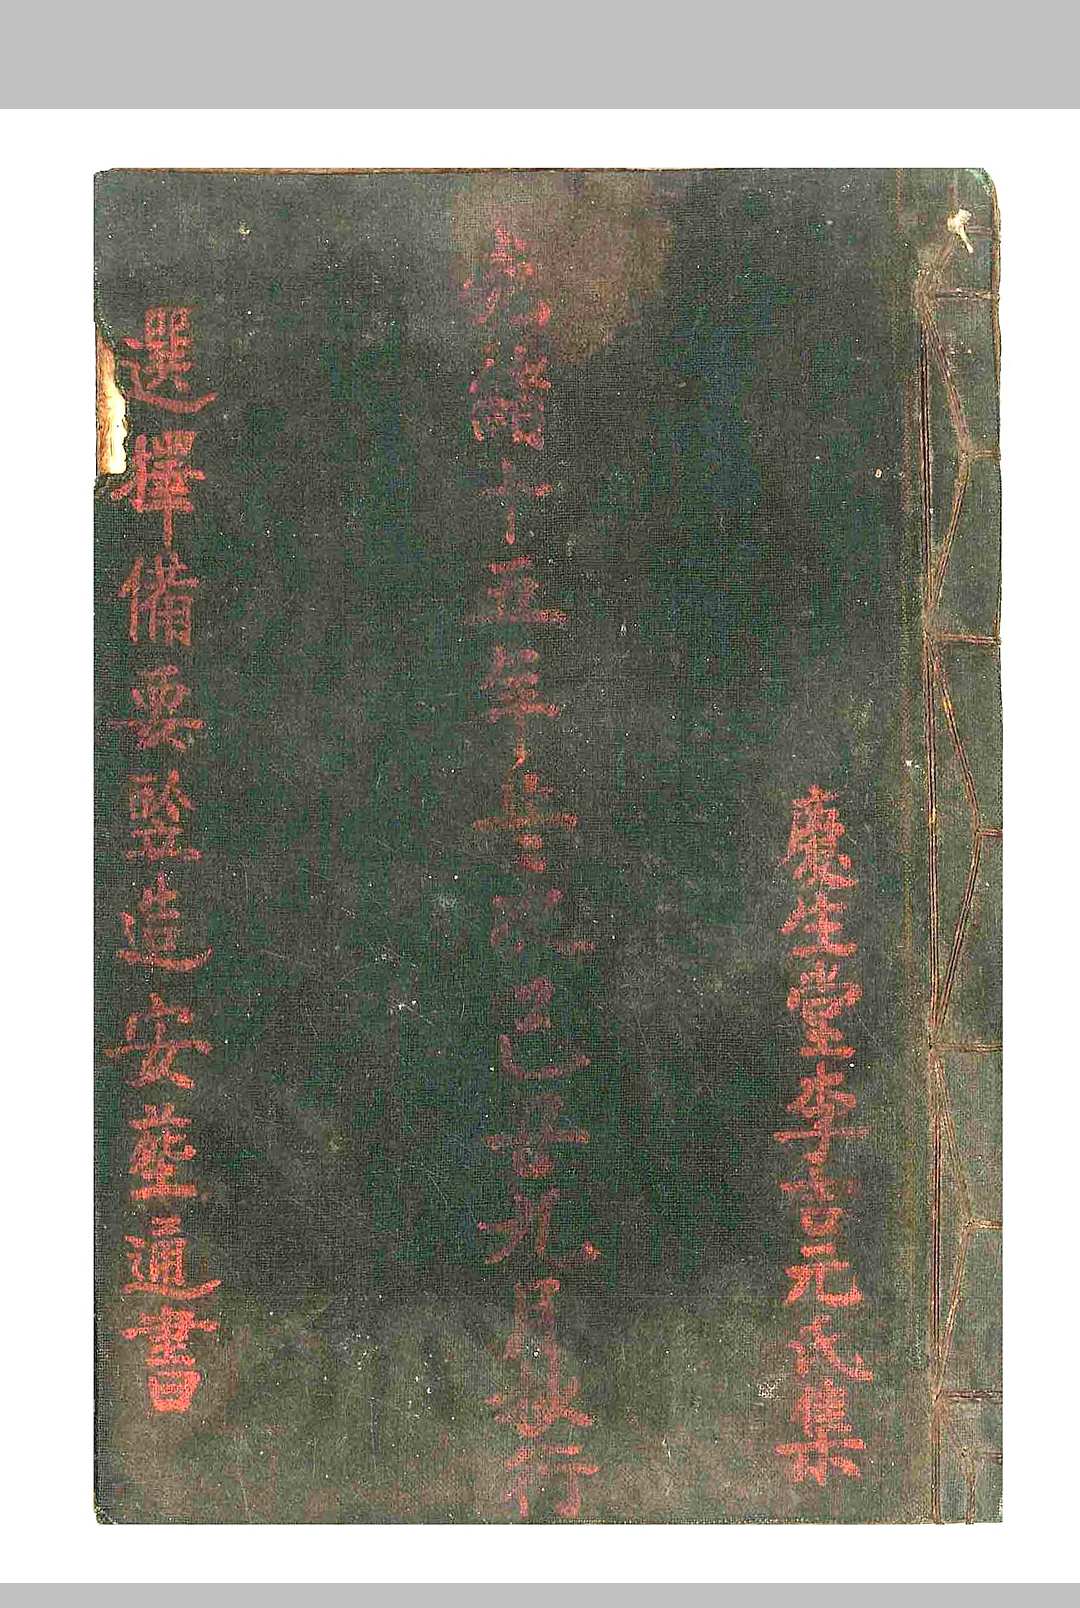 慶生堂李吉元氏集
光緒十五年歲次己丑九月行
選擇備要竪造安葬通書